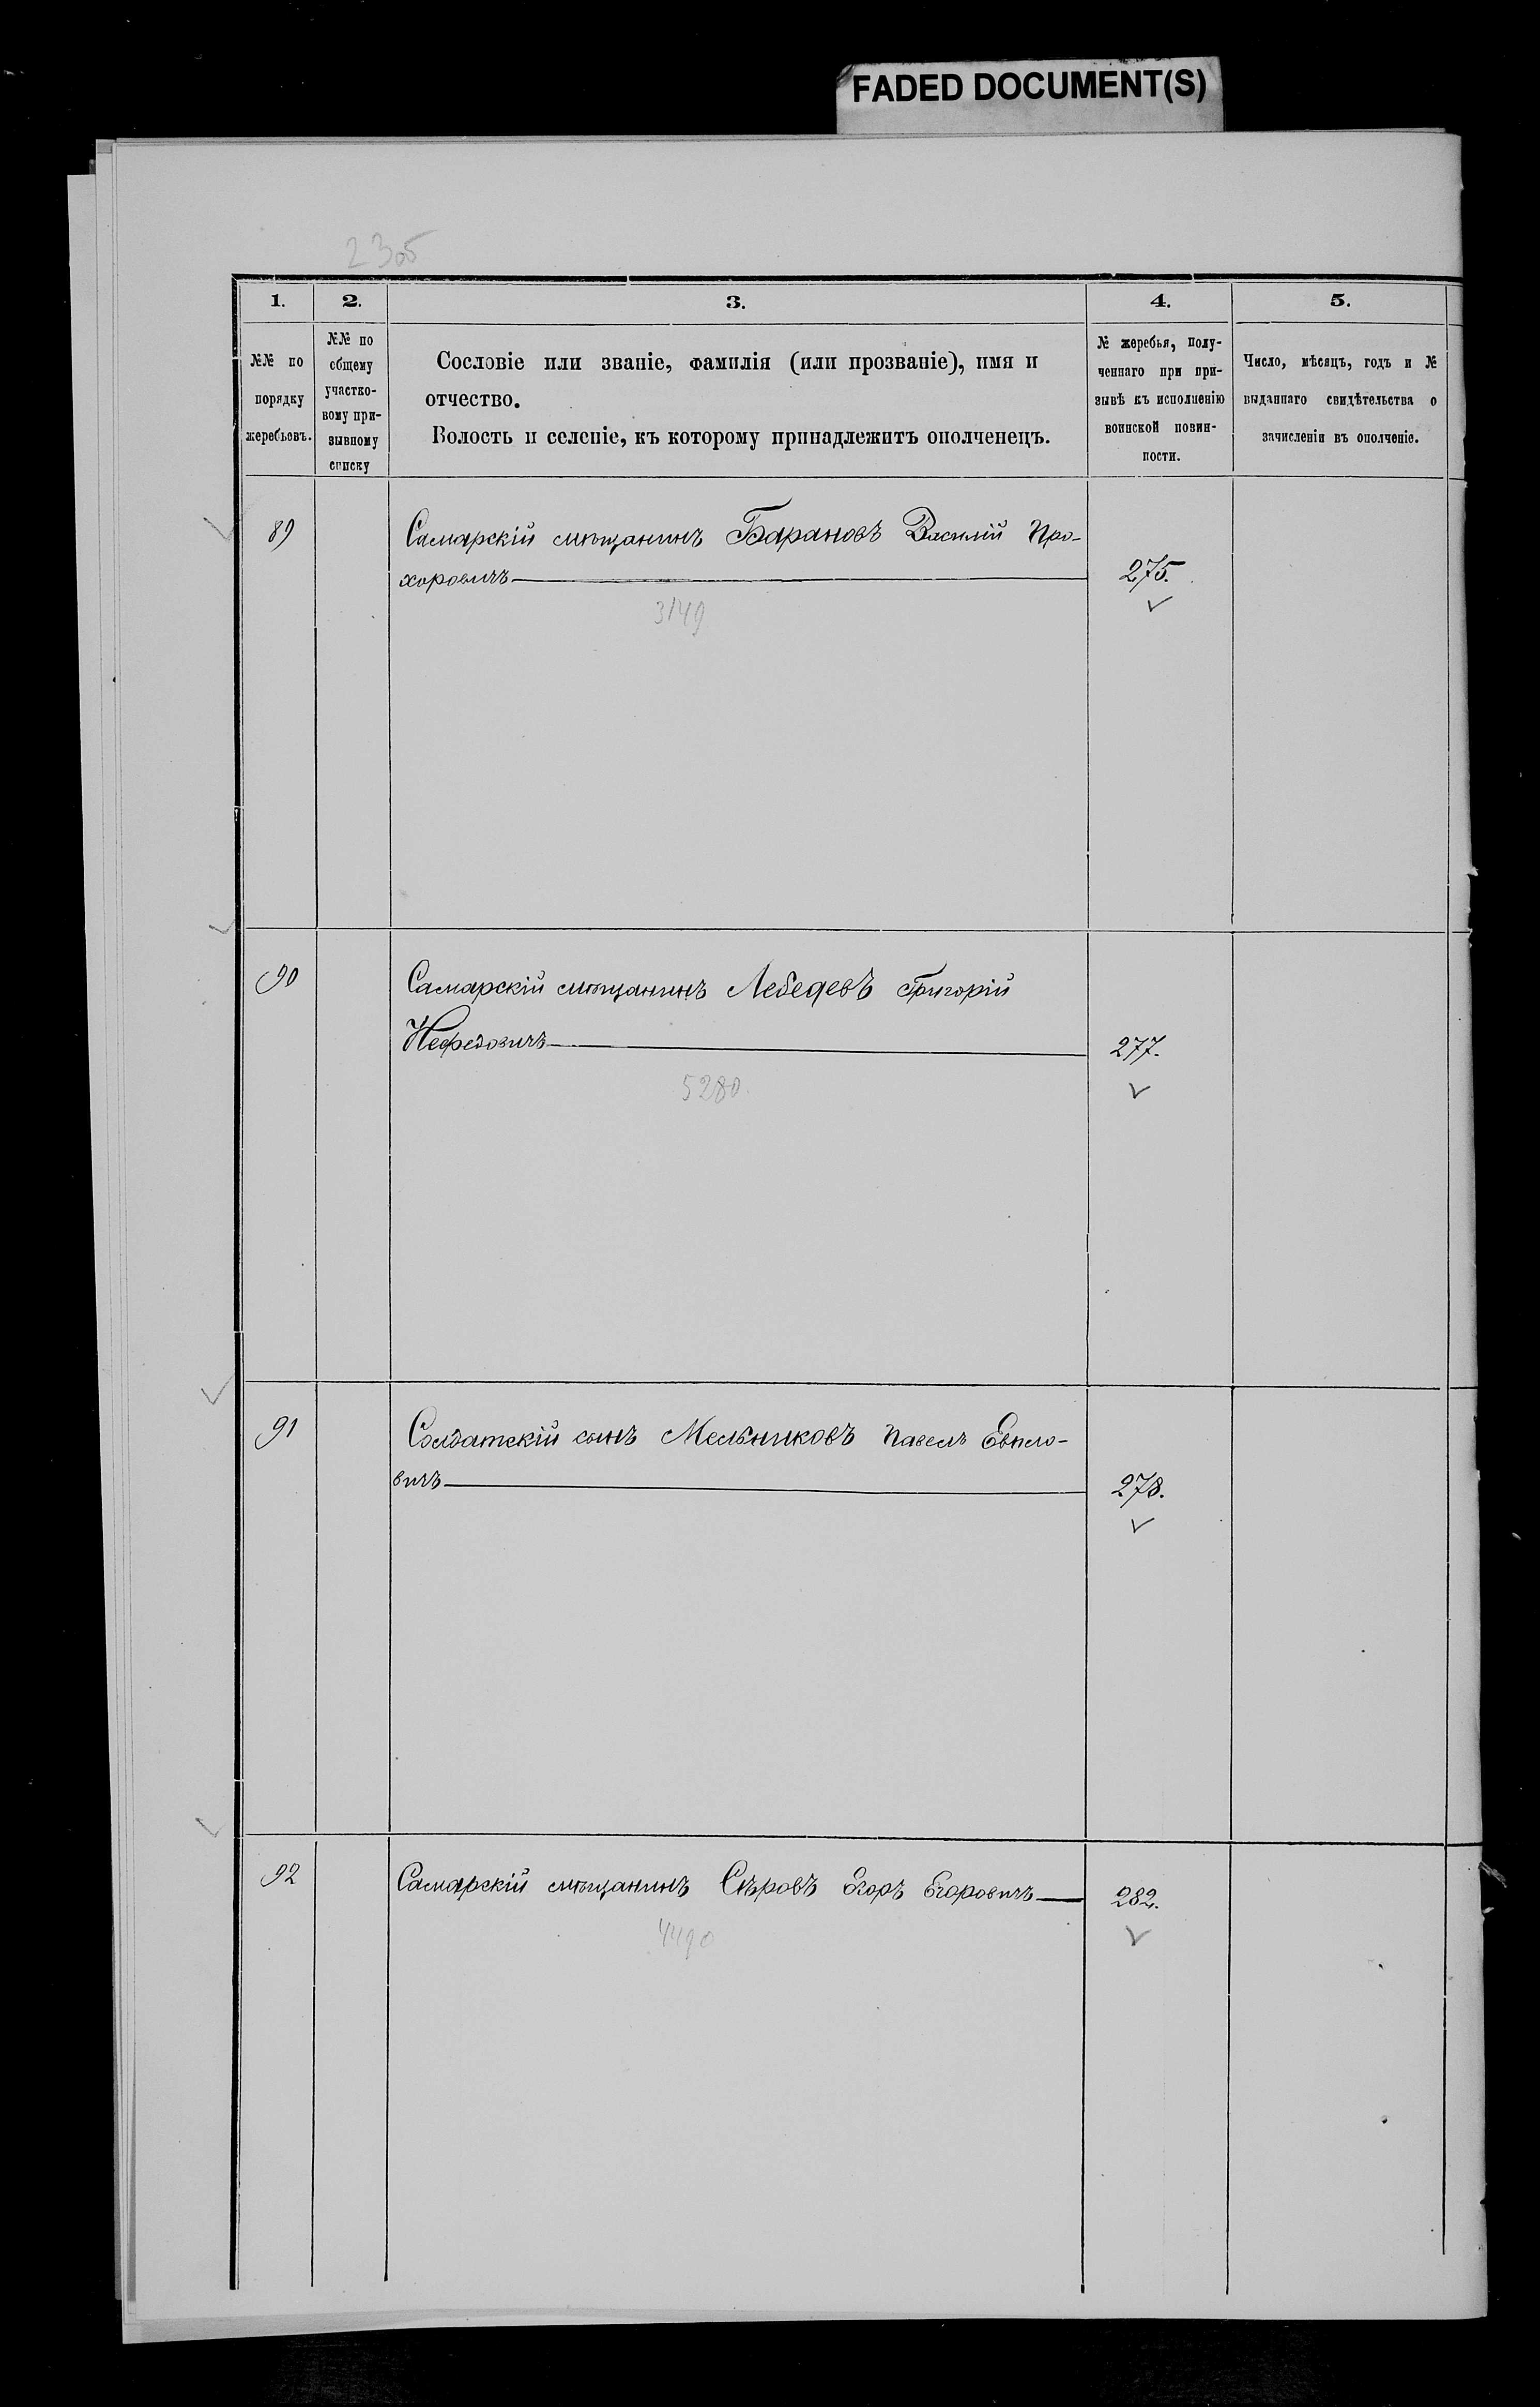 FADED DOCUMENT(S)
2305
1. 2. 3. 4. 5.
№№ по
порядку
жеребьевъ.
№№ по
общему
участко-
вому при-
зывному
списку
Сословіе или званіе, фамилія (или прозваніе), имя и
отчество.
Волость и селеніе, къ которому принадлежитъ ополченецъ.
№ жеребья, полу-
ченнаго при при-
зывѣ къ исполненію
воинской повин-
ности.
Число, мѣсяцъ, годъ и №
выданнаго свидѣтельства о
зачисленіи въ ополченіе.
89 Самарскій мѣщанинъ Барановъ Василій Про-
хоровичъ 275.
3149
90 Самарскій мѣщанинъ Лебедевъ Григорій
Нефедовичъ 277.
5280
91 Солдатскій сынъ Мельниковъ Павелъ Евпло-
вичъ 278.
92 Самарскій мѣщанинъ Сѣровъ Егоръ Егоровичъ 282.
4490